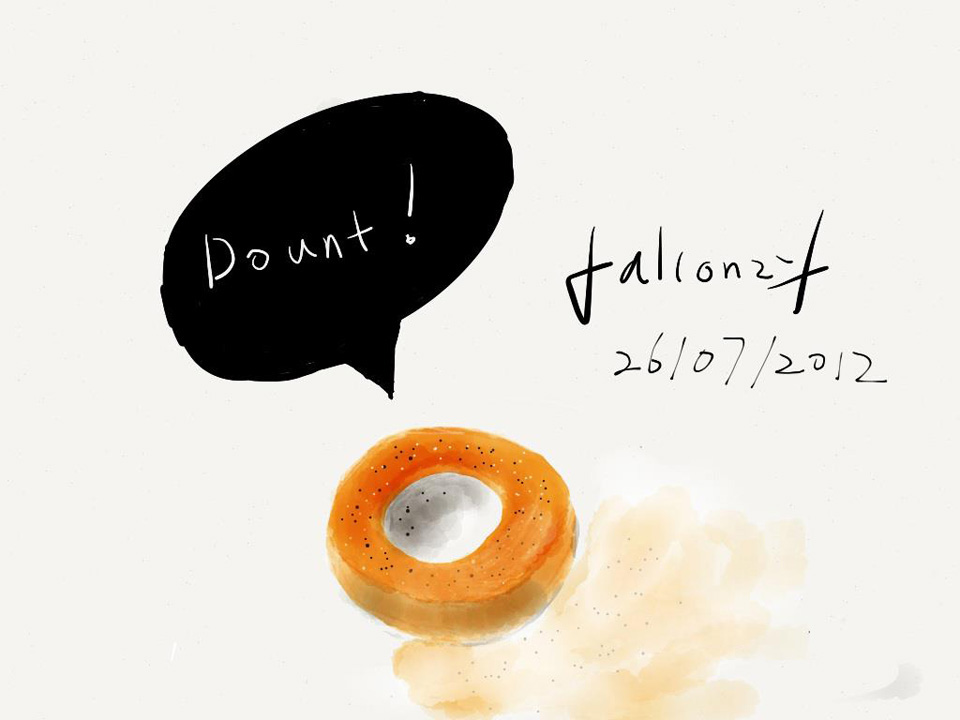 Dount!
falconzf
26/07/2012